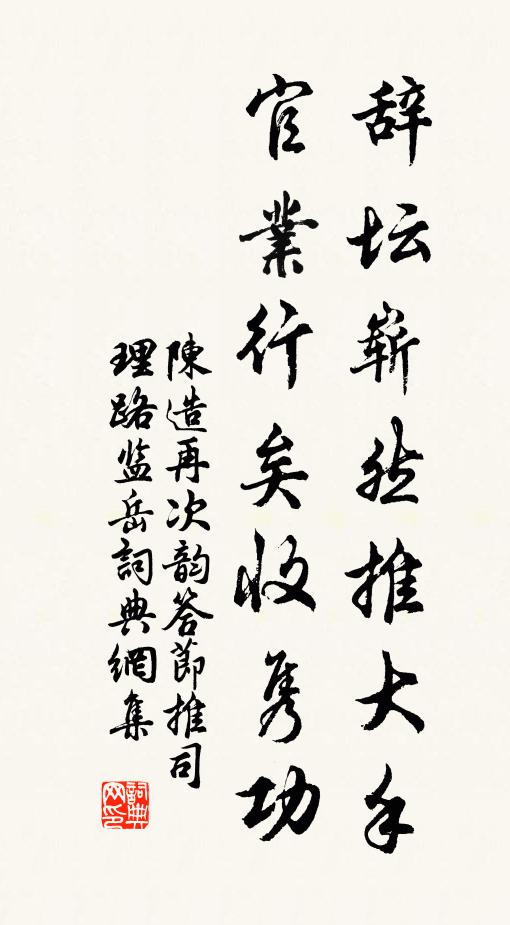 辞坛崭然推大手
官業行矣收隽功
陳造再次韵答節推司
理路监岳詞典網集
詞典网印